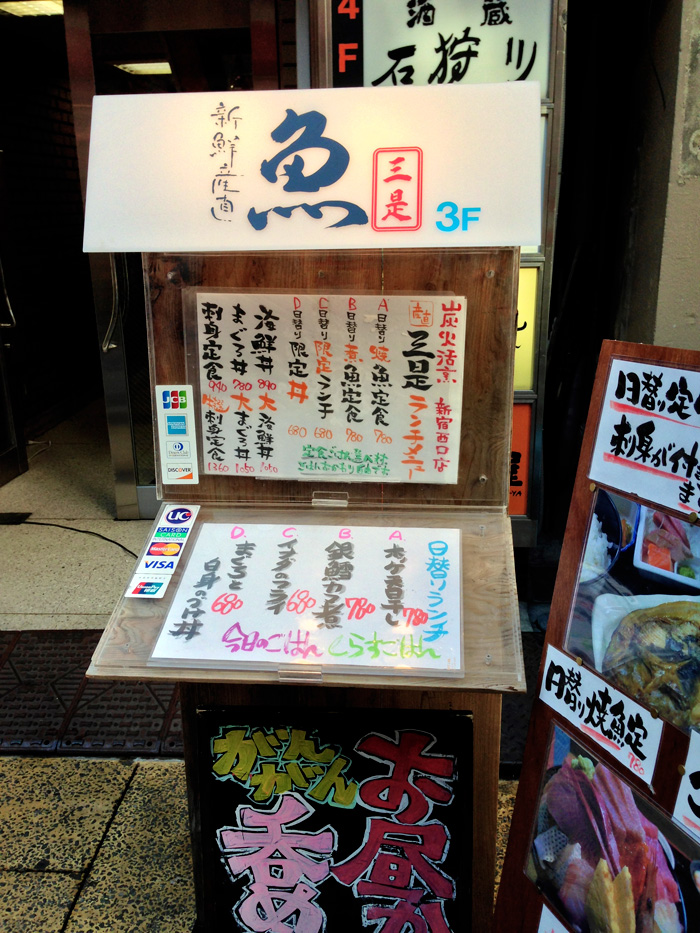 4
F
酒蔵
石狩川
新鮮産直
魚
三是
3F
炭火活烹
新宿西口店
産直
三是
ランチメニュー
A 日替り 焼魚定食 780
B 日替り 煮魚定食 780
C 日替り 限定ランチ 680
D 日替り 限定丼 680
海鮮丼 890
大海鮮丼 1050
まぐろ丼 780
大まぐろ丼 1050
刺身定食 940
刺身定食 1360
JCB
AMERICAN EXPRESS
Diners Club
DISCOVER
UC
SAISON CARD
MasterCard
VISA
日替りランチ
A. ホッケ一夜干し 780
B. 銀鱈カマ煮 780
C. イナダのフライ 680
D. まぐろと白身のづけ丼 680
今日のごはん
しらすごはん
お昼か
がんがん
呑め
日替り定
刺身が付
日替り焼魚定
780